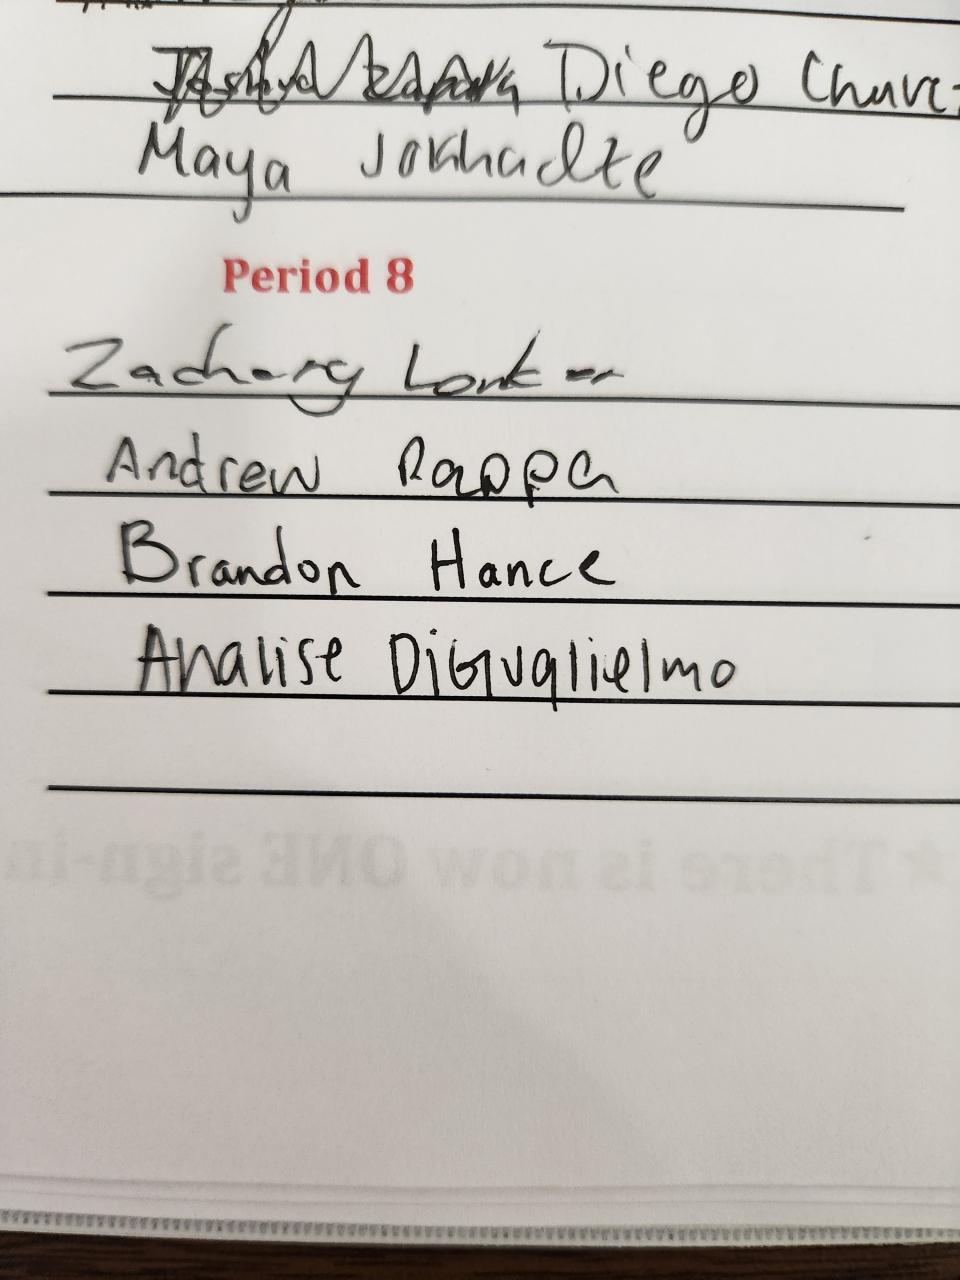 Diego
Maya
Period 8
Zachary
Andrew Rappa
Brandon Hance
Analise DiGuglielmo
★There is now ONE sign-in